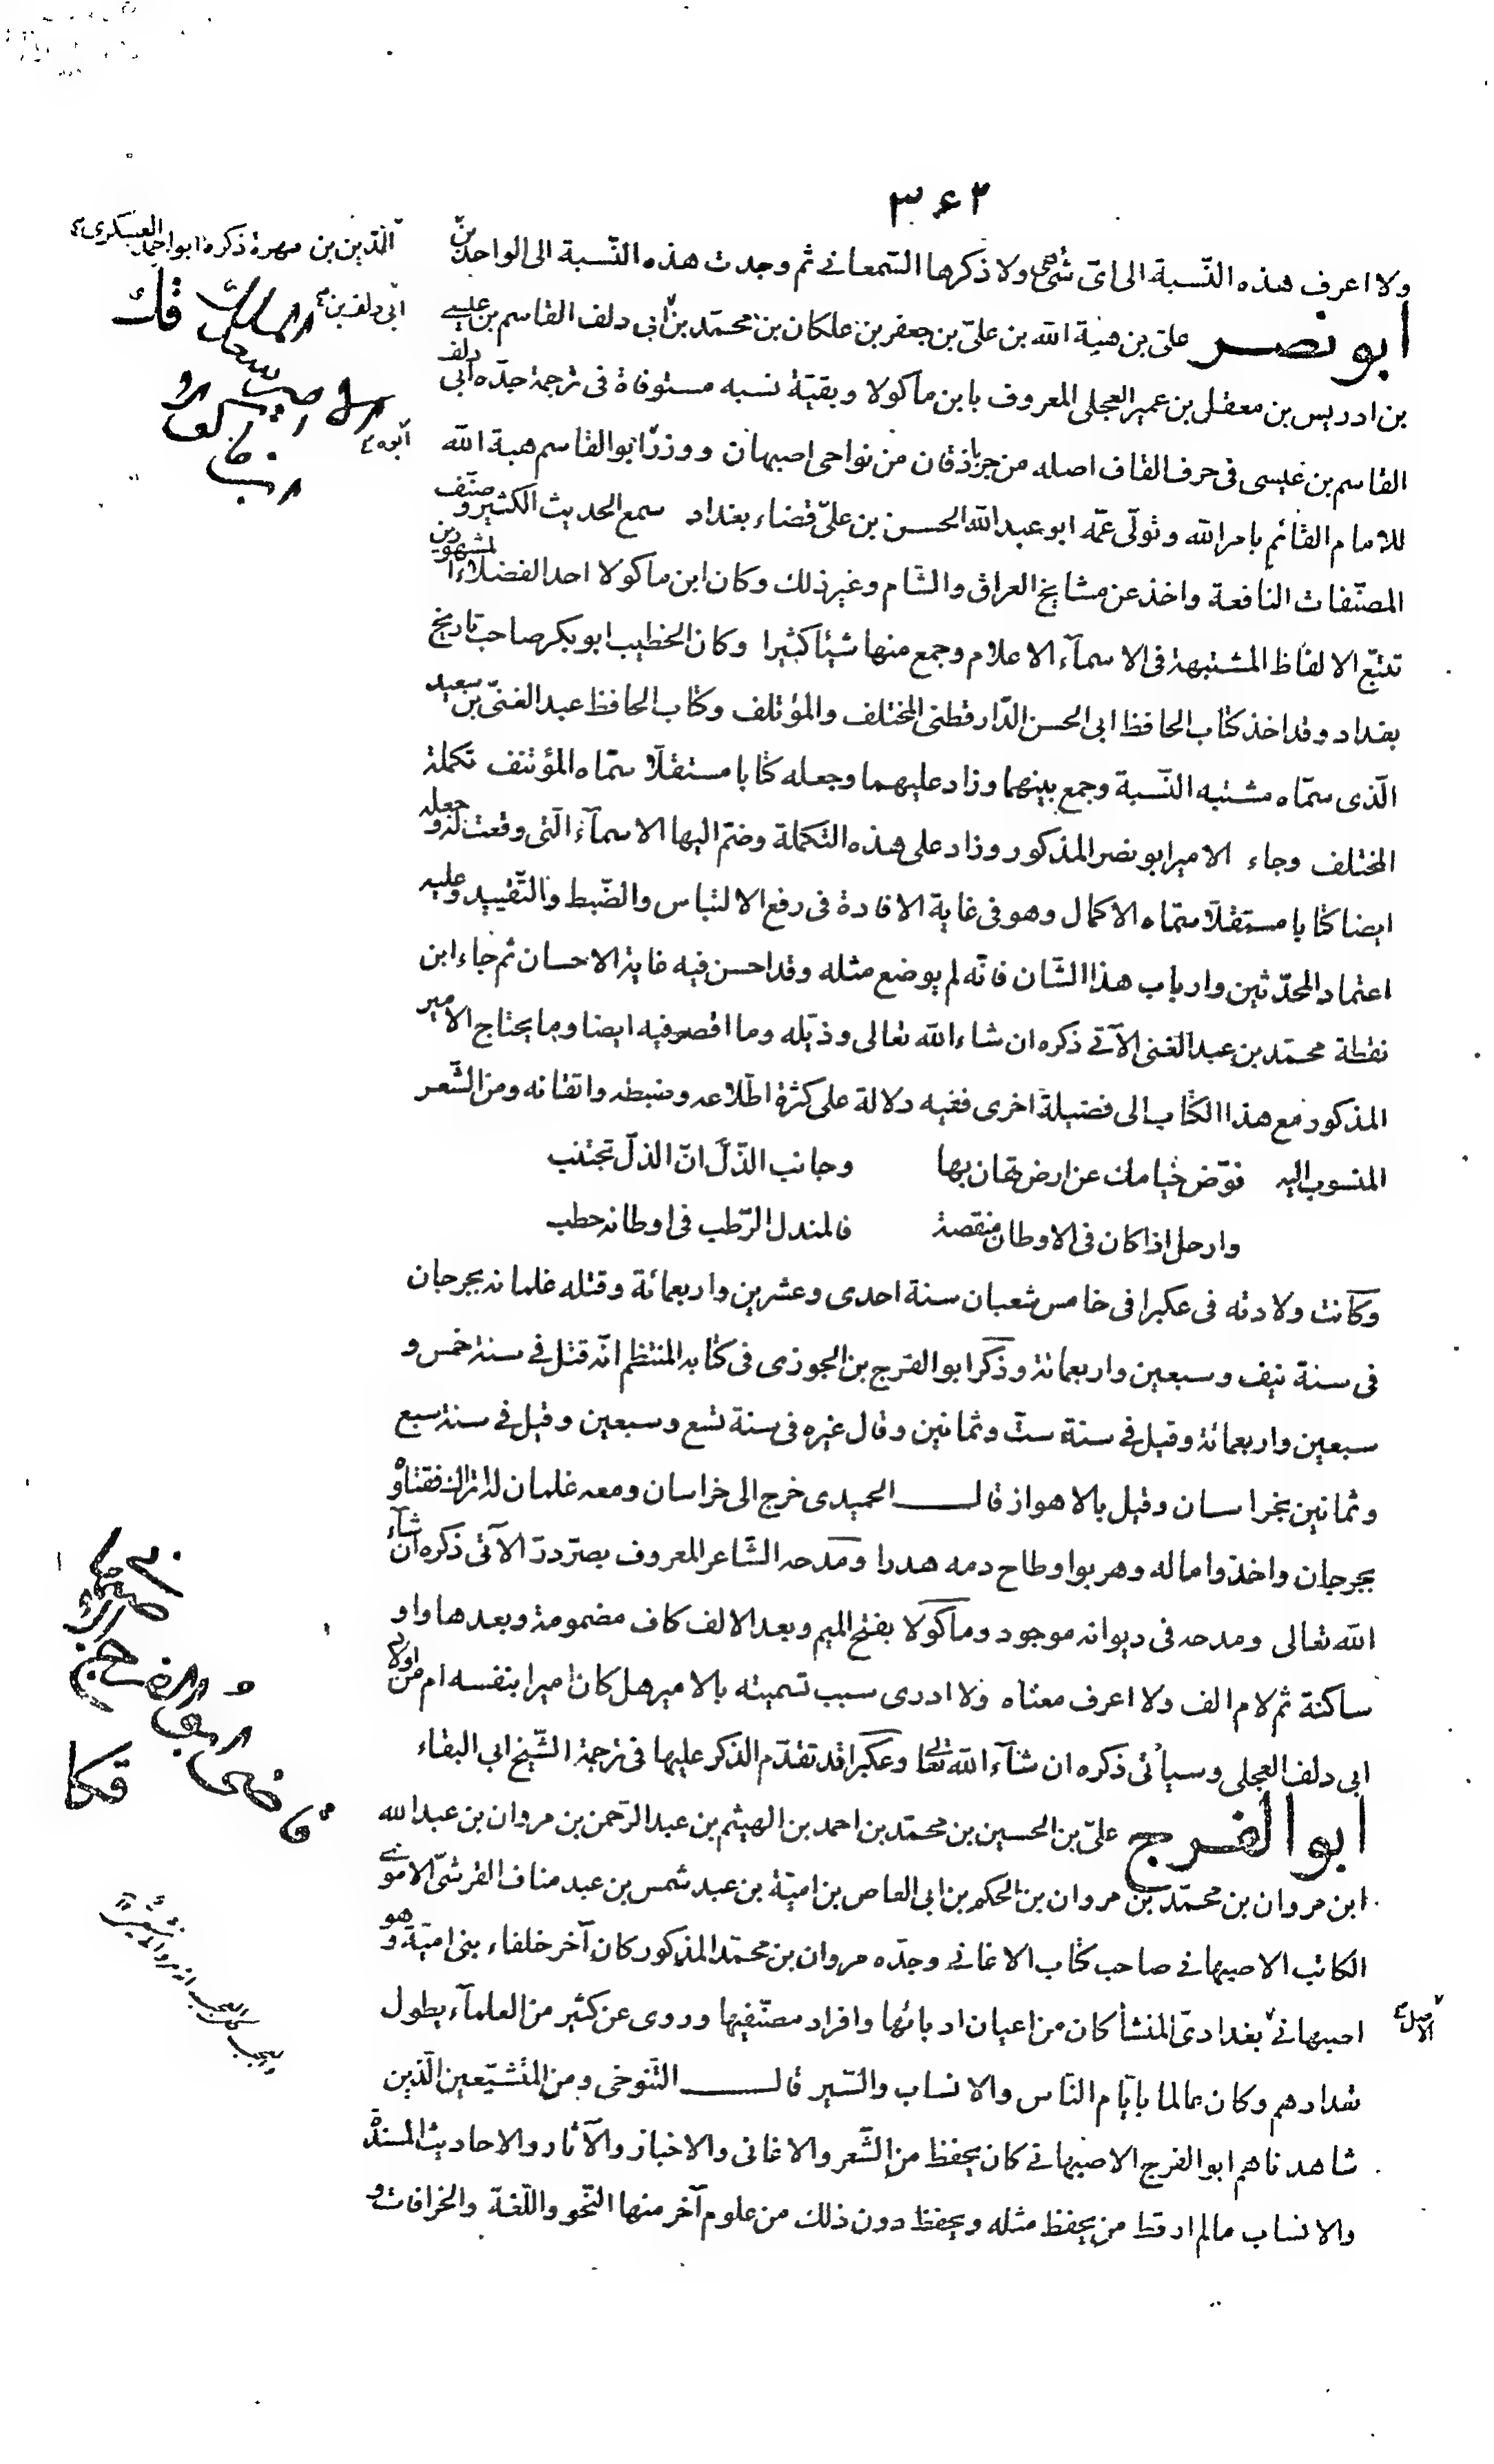 ٣۶٢
ولا اعرف هذه النّسبة الى اىّ شئ هى ولا ذكرها السّمعانى ثم وجدت هذه النّسبة الى الواحد بن
الذين بن مهرة ذكره ابو احمد العسكرى
ابو نصر علىّ بن هبة الله بن علىّ بن جعفر بن علكان بن محمّد بن ابى دلف القاسم بن عيسى
ابى دلف بن
بن ادريس بن معقل بن عمير العجلى المعروف بابن ماكولا وبقيّة نسبه مستوفاة فى ترجمة جدّه ابى دلف
القاسم بن عيسى فى حرف القاف اصله من جرباذقان من نواحى اصبهان ووزر ابو القاسم هبة الله
ابوه
للامام القائم بامر الله وتولّى عمّه ابو عبد الله الحسن بن علىّ قضاء بغداد سمع الحديث الكثير وصنّف
المصنّفات النافعة واخذ عن مشايخ العراق والشام وغير ذلك وكان ابن ماكولا احد الفضلاء المشهورين
تتبّع الالفاظ المشتبهة فى الاسمآء الاعلام وجمع منها شيئا كثيرا وكان الخطيب ابو بكر صاحب تاريخ
بغداد وقد اخذ كتاب الحافظ ابى الحسن الدّارقطنى المختلف والمؤتلف وكتاب الحافظ عبد الغنىّ بن سعيد
الّذى سمّاه مشتبه النّسبة وجمع بينهما وزاد عليهما وجعله كتابا مستقلّا سمّاه المؤتنف تكملة
المختلف وجاء الامير ابو نصر المذكور وزاد على هذه التكملة وضمّ اليها الاسمآء الّتى وقعت له وجعله
ايضا كتابا مستقلّا سمّاه الاكمال وهو فى غاية الافادة فى رفع الالتباس والضّبط والتّقييد وعليه
اعتماد المحدّثين وارباب هذا الشّان فانّه لم يوضع مثله وقد احسن فيه غاية الاحسان ثم جاء ابن
نقطة محمّد بن عبد الغنى الآتى ذكره ان شاء الله تعالى وذيّله وما اقصر فيه ايضا وما يحتاج الامير
المذكور مع هذا الكتاب الى فضيلة اخرى ففيه دلالة على كثرة اطّلاعه وضبطه واتقانه ومن الشّعر
المنسوب اليه قوّض خيامك عن ارض تهان بها وجانب الذّلّ انّ الذلّ تجتنب
وارحل اذا كان فى الاوطان منقصة فالمندل الرّطب فى اوطانه حطب
وكانت ولادته فى عكبرا فى خامس شعبان سنة احدى وعشرين واربعمائة وقتله غلمانه بجرجان
فى سنة نيف وسبعين واربعمائة وذكر ابو الفرج بن الجوزى فى كتابه المنتظم انّه قتل فى سنة خمس و
سبعين واربعمائة وقيل فى سنة ستّ وثمانين وقال غيره فى سنة تسع وسبعين وقيل فى سنة سبع
وثمانين بخراسان وقيل بالاهواز قال الحميدى خرج الى خراسان ومعه غلمان له اتراك فقتلوه
بجرجان واخذوا ماله وهربوا وطاح دمه هدرا ومدحه الشّاعر المعروف بصرّدرّ الآتى ذكره ان شآء
الله تعالى ومدحه فى ديوانه موجود وماكولا بفتح الميم وبعد الالف كاف مضمومة وبعدها واو
ساكنة ثم لام الف ولا اعرف معناه ولا ادرى سبب تسميته بالامير هل كان اميرا بنفسه ام من اولاد
ابى دلف العجلى وسيأتى ذكره ان شآء الله تعالى وعكبرا قد تقدّم الذكر عليها فى ترجمة الشّيخ ابى البقاء
ابو الفرج علىّ بن الحسين بن محمّد بن احمد بن الهيثم بن عبد الرّحمن بن مروان بن عبد الله
ابن مروان بن محمّد بن مروان بن الحكم بن ابى العاص بن اميّة بن عبد شمس بن عبد مناف القرشىّ الاموى
الكاتب الاصبهانى صاحب كتاب الاغانى وجدّه مروان بن محمّد المذكور كان آخر خلفاء بنى اميّة وهو
اصبهانى بغدادىّ المنشأ كان من اعيان ادبائها وافراد مصنّفيها وروى عن كثير من العلمآء يطول
الاصل
تعدادهم وكان عالما بايّام النّاس والانساب والسّير قال التّنوخى ومن المتشيّعين الّذين
شاهدناهم ابو الفرج الاصبهانى كان يحفظ من الشّعر والاغانى والاخبار والآثار والاحاديث المسندة
والانساب مالم ار قط من يحفظ مثله ويحفظ دون ذلك من علوم آخر منها النّحو واللّغة والخرافات و